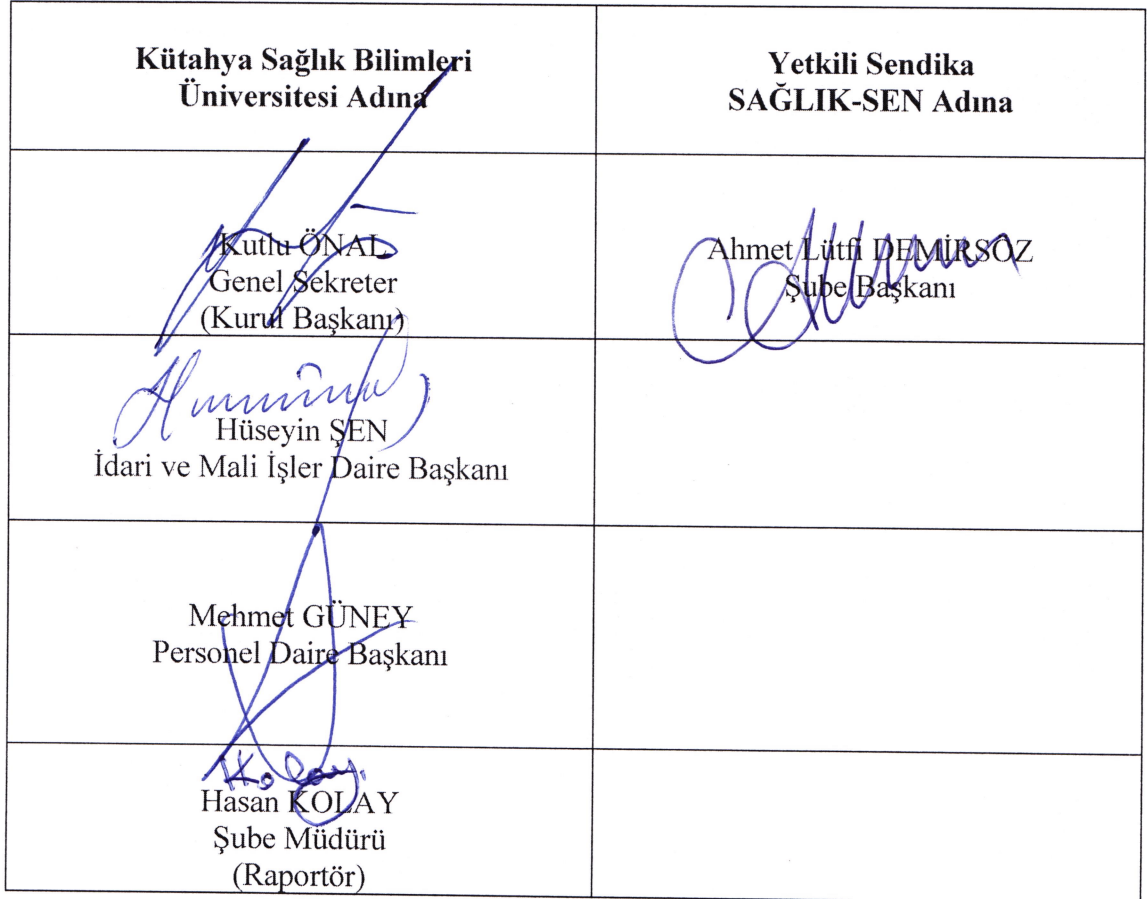 Kütahya Sağlık Bilimleri
Üniversitesi Adına
Yetkili Sendika
SAĞLIK-SEN Adına
Kutlu ÖNAL
Genel Sekreter
(Kurul Başkanı)
Ahmet Lütfi DEMİRSÖZ
Şube Başkanı
Hüseyin ŞEN
İdari ve Mali İşler Daire Başkanı
Mehmet GÜNEY
Personel Daire Başkanı
Hasan KOLAY
Şube Müdürü
(Raportör)